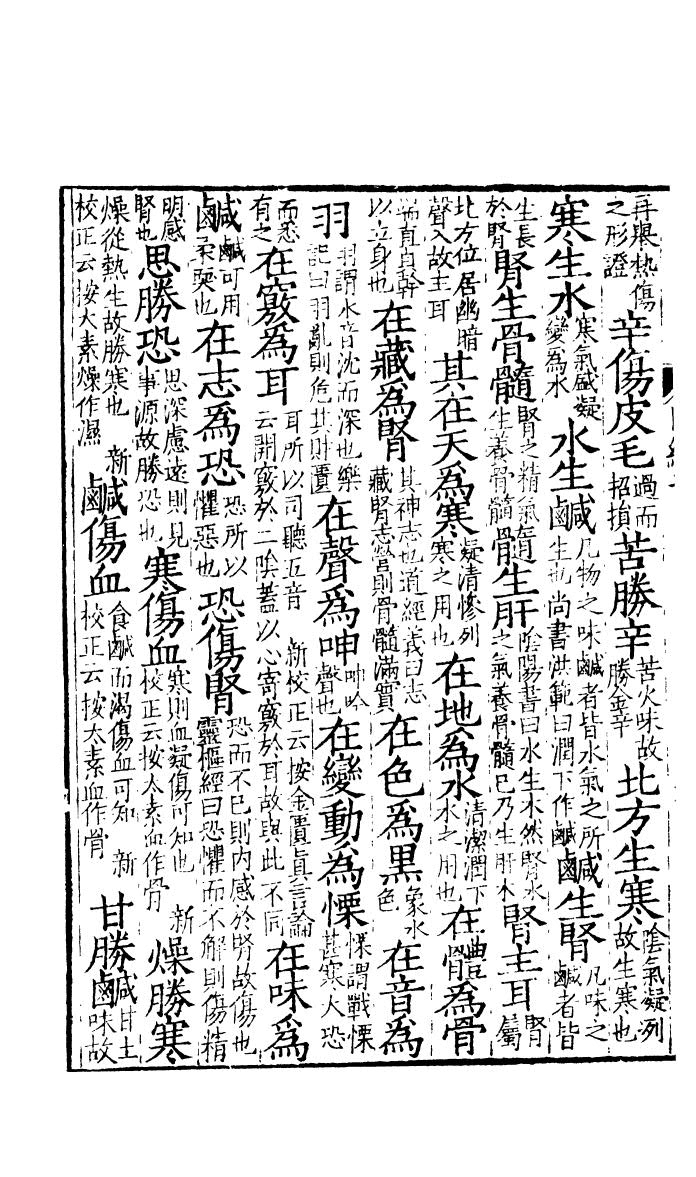 再舉熱傷之形證 辛傷皮毛過而招損 苦勝辛苦火味故勝金辛 北方生寒陰氣凝冽故生寒也
寒生水寒氣盛凝變為水 水生鹹凡物之味鹹者皆水氣之所生也尚書洪範曰潤下作鹹 鹹生腎凡味之鹹者皆
生長於腎 腎生骨髓腎之精氣生養骨髓 髓生肝陰陽書曰水生木然腎水之氣養骨髓已乃生肝木 腎主耳腎屬
北方位居幽暗聲入故主耳 其在天為寒凝清慘列寒之用也 在地為水清潔潤下水之用也 在體為骨
端直貞幹以立身也 在藏為腎其神志也道經義曰志藏腎志營則骨髓滿實 在色為黑象水色 在音為
羽羽謂水音沈而深也樂記曰羽亂則危其財匱 在聲為呻呻吟聲也 在變動為慄慄謂戰慄甚寒大恐
而悉有之 在竅為耳耳所以司聽五音 新校正云按金匱眞言論云開竅於二陰蓋以心寄竅於耳故與此不同 在味為
鹹鹹可用柔耎也 在志為恐恐所以懼惡也 恐傷腎恐而不已則內感於腎故傷也靈樞經曰恐懼而不解則傷精
明感腎也 思勝恐思深慮遠則見事源故勝恐也 寒傷血寒則血凝傷可知也 新校正云按太素血作骨 燥勝寒
燥從熱生故勝寒也 新校正云按大素燥作濕 鹹傷血食鹹而渴傷血可知 新校正云按太素血作骨 甘勝鹹甘土味故